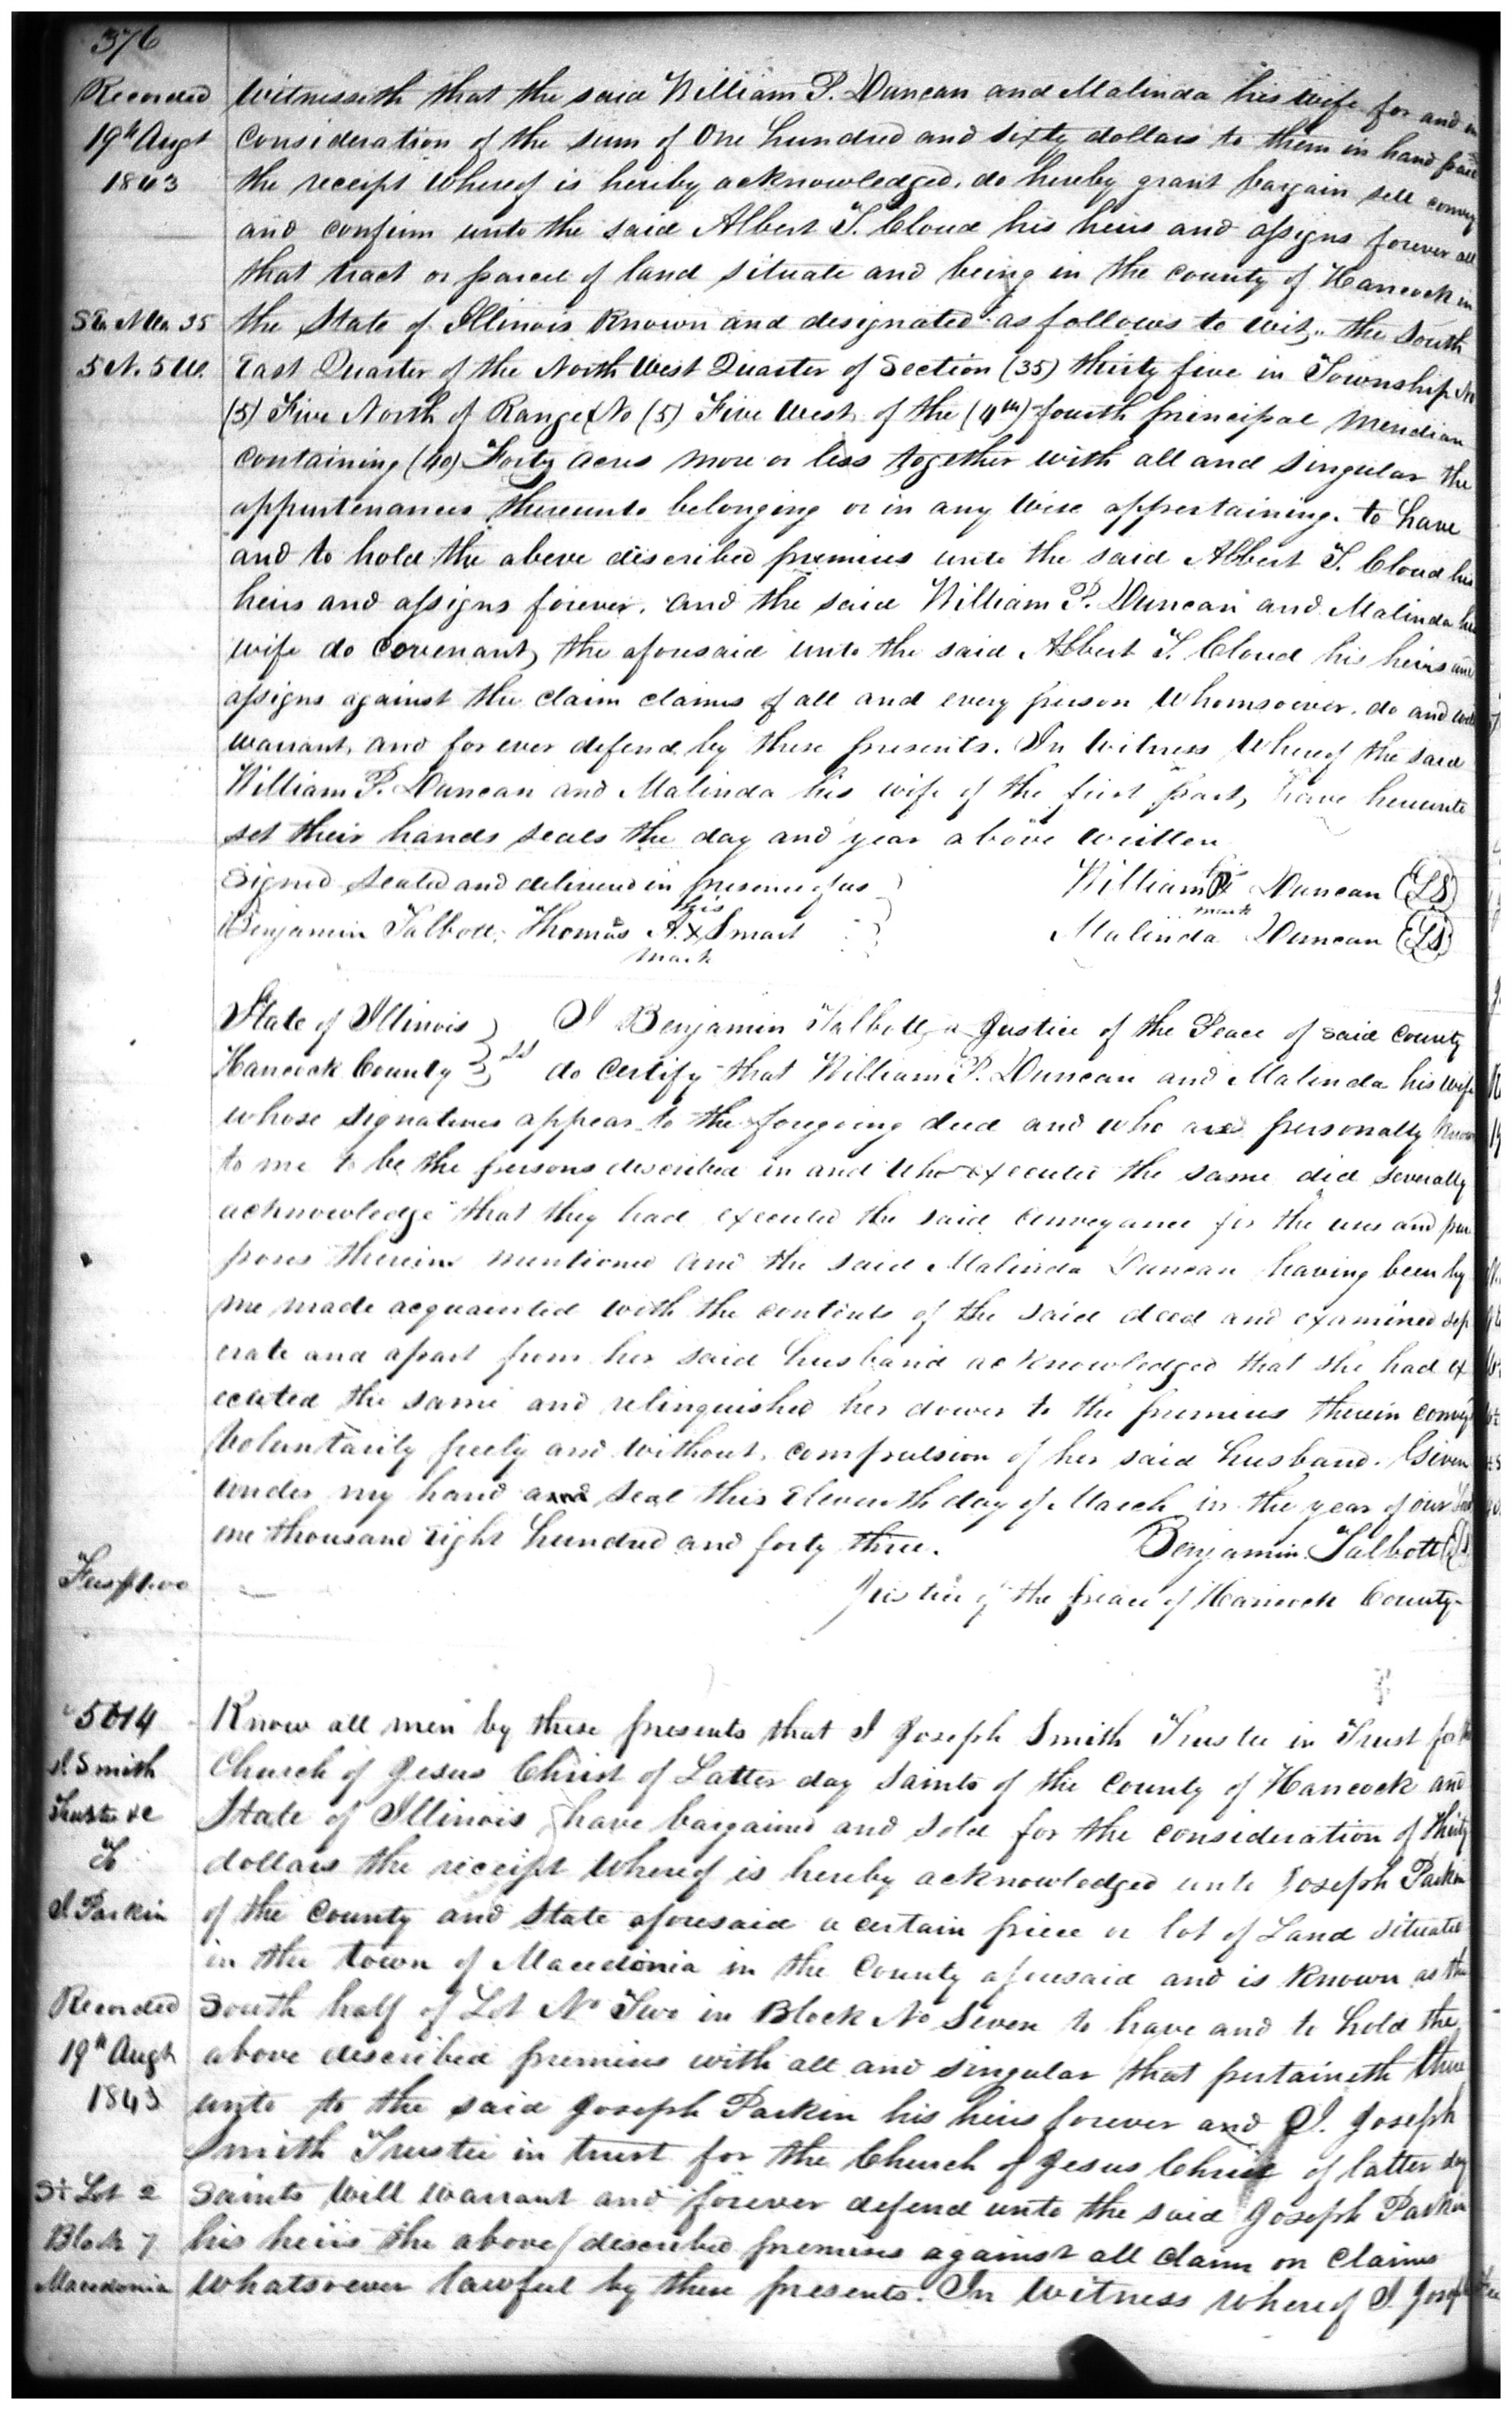 376
Recorded
19th Augt
1843
Witnesseth that the said William P. Duncan and Malinda his wife for and in
consideration of the sum of One hundred and sixty dollars to them in hand paid
the receipt whereof is hereby acknowledged, do hereby grant bargain sell convey
and confirm unto the said Albert T. Cloud his heirs and assigns forever all
that tract or parcel of land situate and being in the county of Hancock in
SE NW 35
5 N. 5 W.
the State of Illinois known and designated as follows to wit, the South
East Quarter of the North West Quarter of Section (35) thirty five in Township No
(5) Five North of Range No (5) Five West of the (4th) fourth principal Meridian
containing (40) Forty acres more or less together with all and singular the
appurtenances thereunto belonging or in any wise appertaining. to have
and to hold the above described premises unto the said Albert T. Cloud his
heirs and assigns forever. and the said William P. Duncan and Malinda his
wife do covenant, the aforesaid unto the said Albert T. Cloud his heirs and
assigns against the claim claims of all and every person Whomsoever. do and will
warrant, and for ever defend by these presents. In Witness Whereof the said
William P. Duncan and Malinda his wife of the first part, have hereunto
set their hands seals the day and year above written
Signed Sealed and delivered in presence of us
Benjamin Talbott, Thomas A. his X mark Smart
William his P mark Duncan (LS)
Malinda Duncan (LS)
State of Illinois
Hancock County } ss
I Benjamin Talbott a Justice of the Peace of said County
do certify that William P. Duncan and Malinda his wife
whose signatures appear to the foregoing deed and who are personally known
to me to be the persons described in and who executed the same did severally
acknowledge that they had executed the said conveyance for the uses and pur
poses therein mentioned and the said Malinda Duncan having been by
me made acquainted with the contents of the said deed and examined sep
erate and apart from her said husband acknowledged that she had ex
ecuted the same and relinquished her dower to the premises therein convey
Voluntarily freely and without, compulsion of her said husband. Given
under my hand and seal this Eleventh day of March in the year of our Lord
one thousand eight hundred and forty three.
Benjamin Talbott (LS)
Justice of the peace of Hancock County
Fees $1.00
5014
J Smith
Trustee &c
To
J. Parkin
Know all men by these presents that I Joseph Smith Trustee in Trust for the
Church of Jesus Christ of Latter day Saints of the County of Hancock and
State of Illinois have bargained and sold for the consideration of Thirty
dollars the receipt Whereof is hereby acknowledged unto Joseph Parkin
of the County and State aforesaid a certain piece or lot of Land situated
in the town of Macedonia in the County aforesaid and is known as the
Recorded
19th Augt
1843
South half of Lot No Two in Block No Seven to have and to hold the
above described premises with all and singular that pertaineth there
unto to the said Joseph Parkin his heirs forever and I. Joseph
Smith Trustee in trust for the Church of Jesus Christ of latter day
S½ Lot 2
Block 7
Macedonia
Saints Will warrant and forever defend unto the said Joseph Parkin
his heirs the above described premises against all claim or claims
Whatsoever lawful by these presents. In Witness whereof I. Joseph